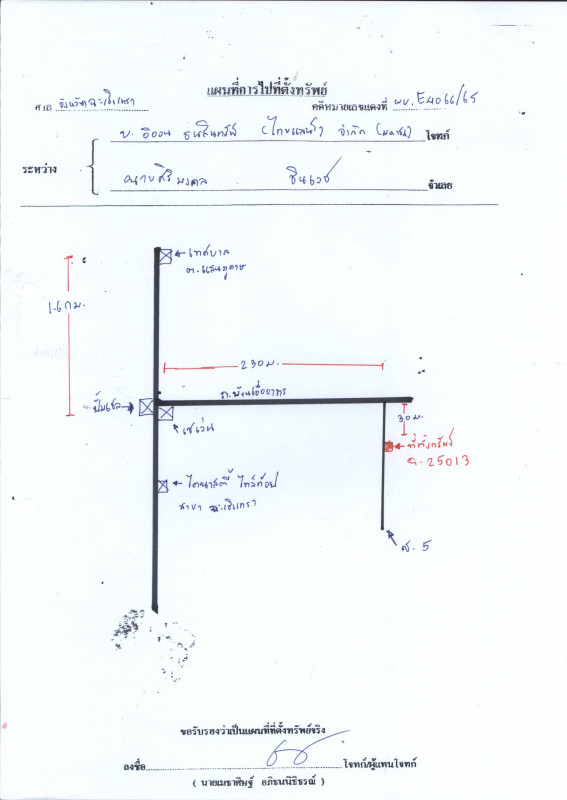 แผนที่การไปที่ตั้งทรัพย์
ศาล จังหวัดฉะเชิงเทรา คดีหมายเลขแดงที่ ผบ.E4066/65
บ. อิออน ธนสินทรัพย์ (ไทยแลนด์) จำกัด (มหาชน) โจทก์
ระหว่าง
นายศิริมงคล ชินเวช จำเลย
เทศบาล
ต.แสนภูดาษ
1.6 กม.
230 ม.
ถ.บ้านเอื้ออาทร
ปั๊มเชล
เซเว่น
30 ม.
ที่ตั้งทรัพย์
ฉ. 25013
ไดนาสตี้ ไทล์ท้อป
สาขา ฉะเชิงเทรา
ซ. 5
ขอรับรองว่าเป็นแผนที่ที่ตั้งทรัพย์จริง
ลงชื่อ โจทก์/ผู้แทนโจทก์
( นายเมธาศิษฐ์ อภิธนนิธิธรณ์ )